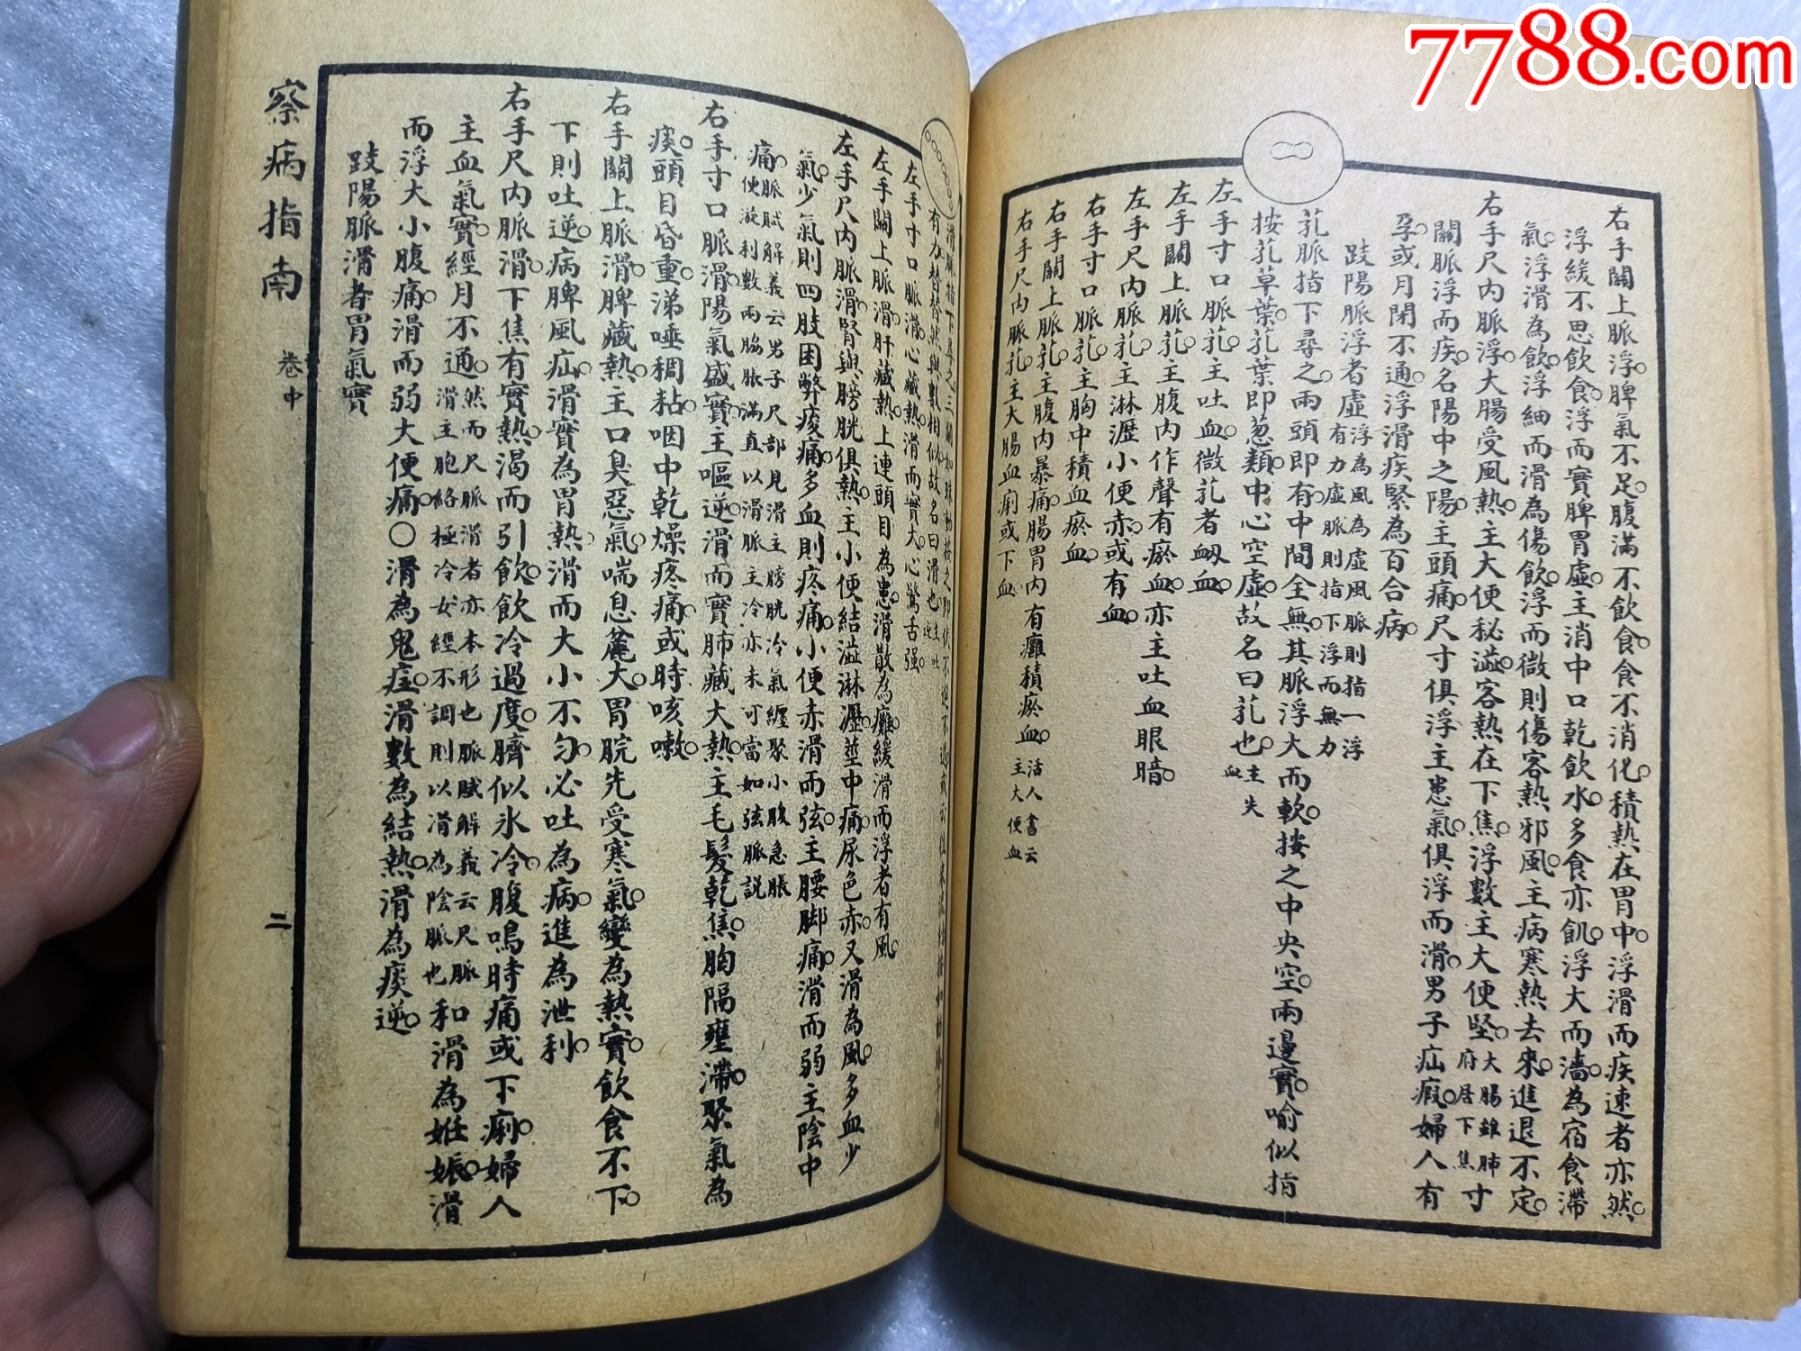 7788.com
右手關上脈浮脾氣不足腹滿不飲食食不消化積熱在胃中浮滑而疾速者亦然
浮緩不思飲食浮而實脾胃虛主消中口乾飲水多食亦飢浮大而濇為宿食滯
氣浮滑為飲浮細而滑為傷飲浮而微則傷客熱邪風主病寒熱去來進退不定
右手尺內脈浮大腸受風熱主大便秘澁客熱在下焦浮數主大便堅大腸雖肺府居下焦寸
關脈浮而疾名陽中之陽主頭痛尺寸俱浮主患氣俱浮而滑男子疝瘕婦人有
孕或月閉不通浮滑疾緊為百合病
趺陽脈浮者虛浮為風為虛風脈則指一浮有力虛脈則指下浮而無力
芤脈指下尋之兩頭即有中間全無其脈浮大而軟按之中央空兩邊實喻似指
按芤草葉芤葉即葱類中心空虛故名曰芤也主失血
左手寸口脈芤主吐血微芤者衂血
左手關上脈芤主腹內作聲有瘀血亦主吐血眼暗
左手尺內脈芤主淋瀝小便赤或有血
右手寸口脈芤主胸中積血瘀血
右手關上脈芤主腹內暴痛腸胃內有癰積瘀血活人書云主大便血
右手尺內脈芤主大腸血痢或下血
滑脈指下尋之三關如珠動按之即伏不進不退
有力替替然與數相似故名曰滑也主吐逆
左手寸口脈滑心藏熱滑而實大心驚舌强
左手關上脈滑肝藏熱上連頭目為患滑散為癱緩滑而浮者有風
左手尺內脈滑腎與膀胱俱熱主小便結澁淋瀝莖中痛尿色赤又滑為風多血少
氣少氣則四肢困弊痠痛多血則疼痛小便赤滑而弦主腰脚痛滑而弱主陰中
痛脈賦解義云男子尺部見滑主膀胱冷氣纏聚小腹急脹便漩利數兩脇脹滿直以滑脈主冷亦未可當如弦脈説
右手寸口脈滑陽氣盛實主嘔逆滑而實肺藏大熱主毛髮乾焦胸隔壅滯聚氣為
痰頭目昏重涕唾稠粘咽中乾燥疼痛或時咳嗽
右手關上脈滑脾藏熱主口臭惡氣喘息麄大胃脘先受寒氣變為熱實飲食不下
下則吐逆病脾風疝滑實為胃熱滑而大小不匀必吐為病進為泄利
右手尺內脈滑下焦有實熱渴而引飲飲冷過度臍似氷冷腹鳴時痛或下痢婦人
主血氣實經月不通然而尺脈滑者亦本形也脈賦解義云尺脈滑主胞絡極冷女經不調則以滑為陰脈也和滑為妊娠滑
而浮大小腹痛滑而弱大便痛〇滑為鬼疰滑數為結熱滑為痰逆
趺陽脈滑者胃氣實
察病指南
卷中
二